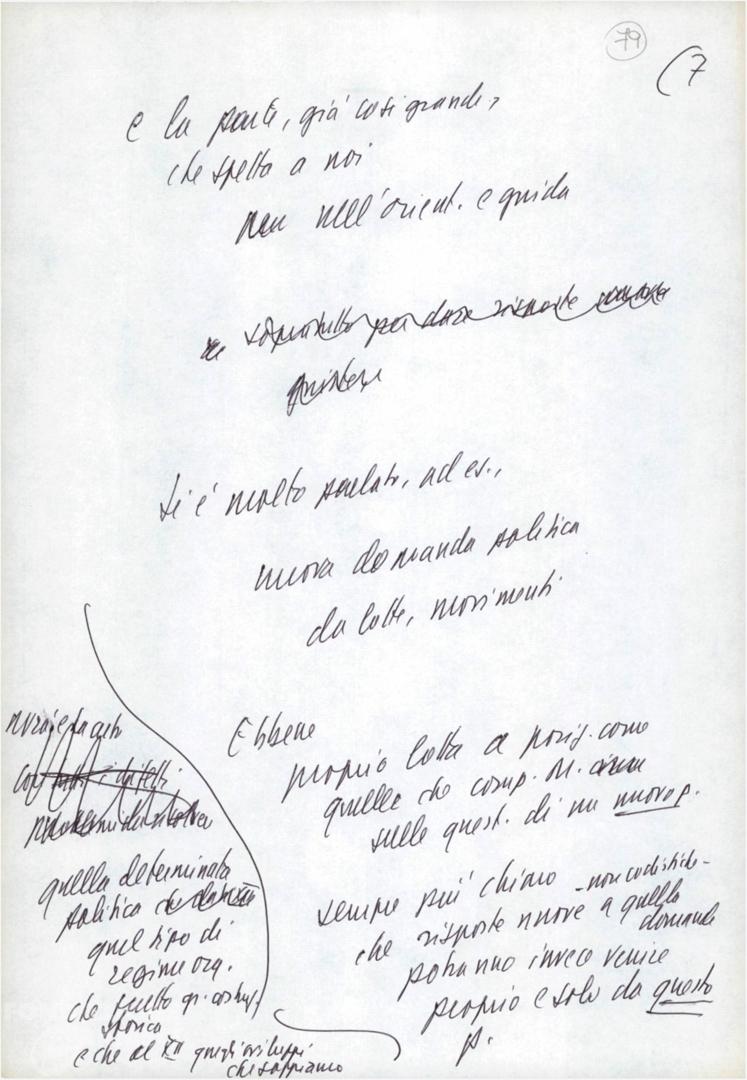 79
(7
e la parte, già così grande,
che spetta a noi
nell'orient. e guida
soprattutto per dare risposte
Si è molto parlato, ad es.,
nuova domanda politica
da lotte, movimenti
Ebbene
proprio lotta a posiz. come
quelle che comp. M.
sulle quest. di un nuovo p.
sempre più chiaro - non codistiche -
che risposte nuove a quelle
domande
potranno invece venire
proprio e solo da questo
p.
quella determinata
politica
quel tipo di
regime org.
che quello gr.
storico
e che al XII quegli sviluppi
che sappiamo